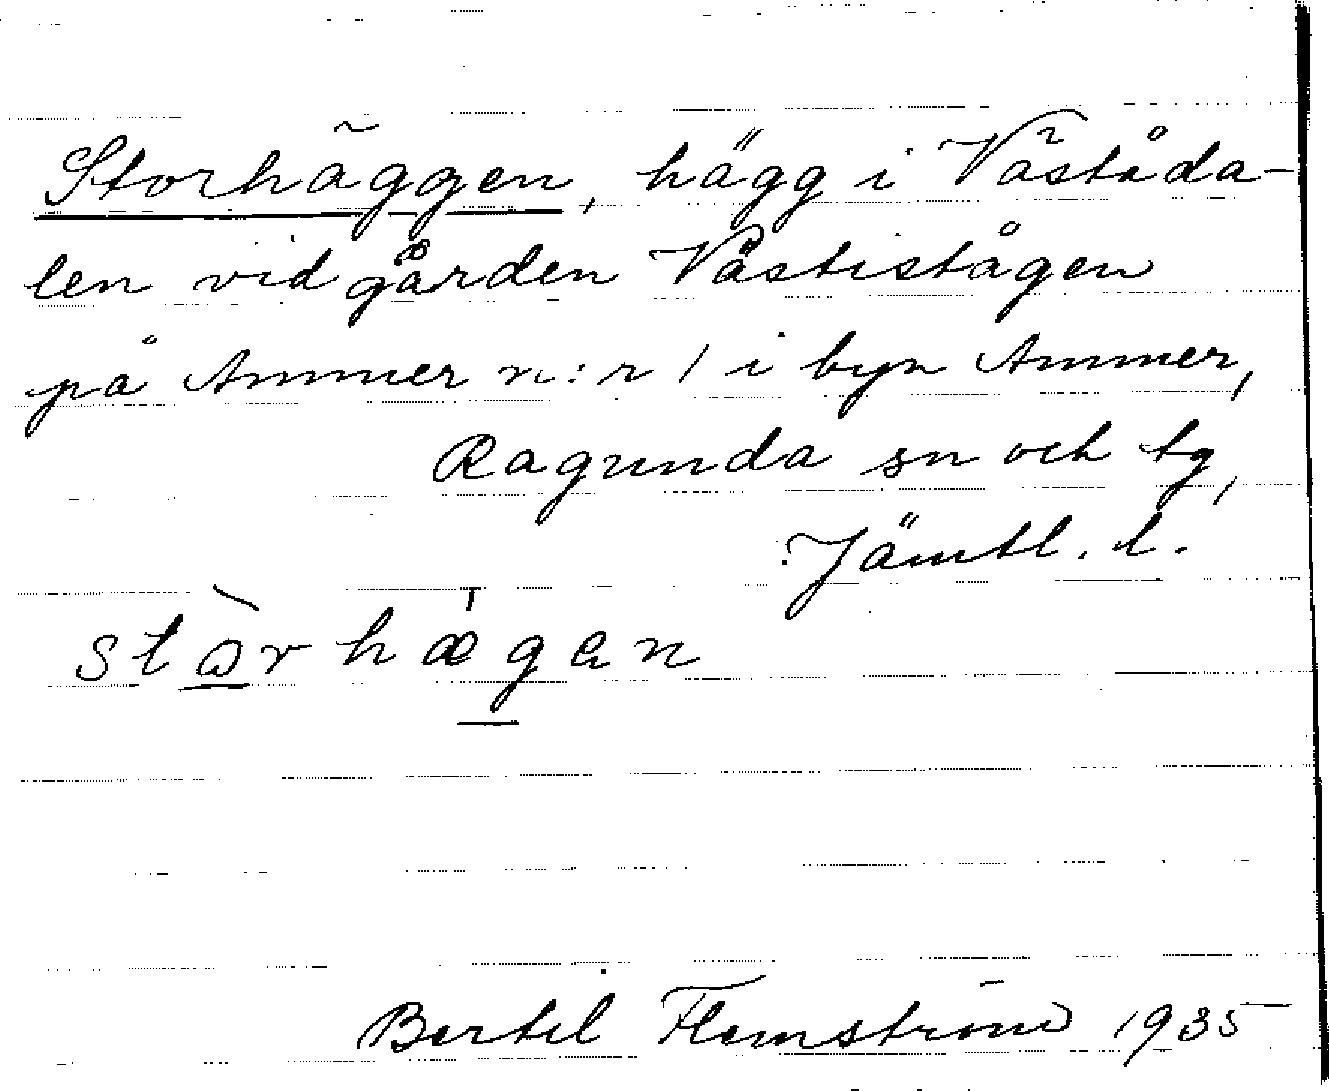 Storhäggen, hägg i Väståda-
len vid gården Västistågen
på Ammer n:r 1 i byn Ammer,
Ragunda sn och tg,
Jämtl. l.
stòrhægen
Bertil Flemström 1935